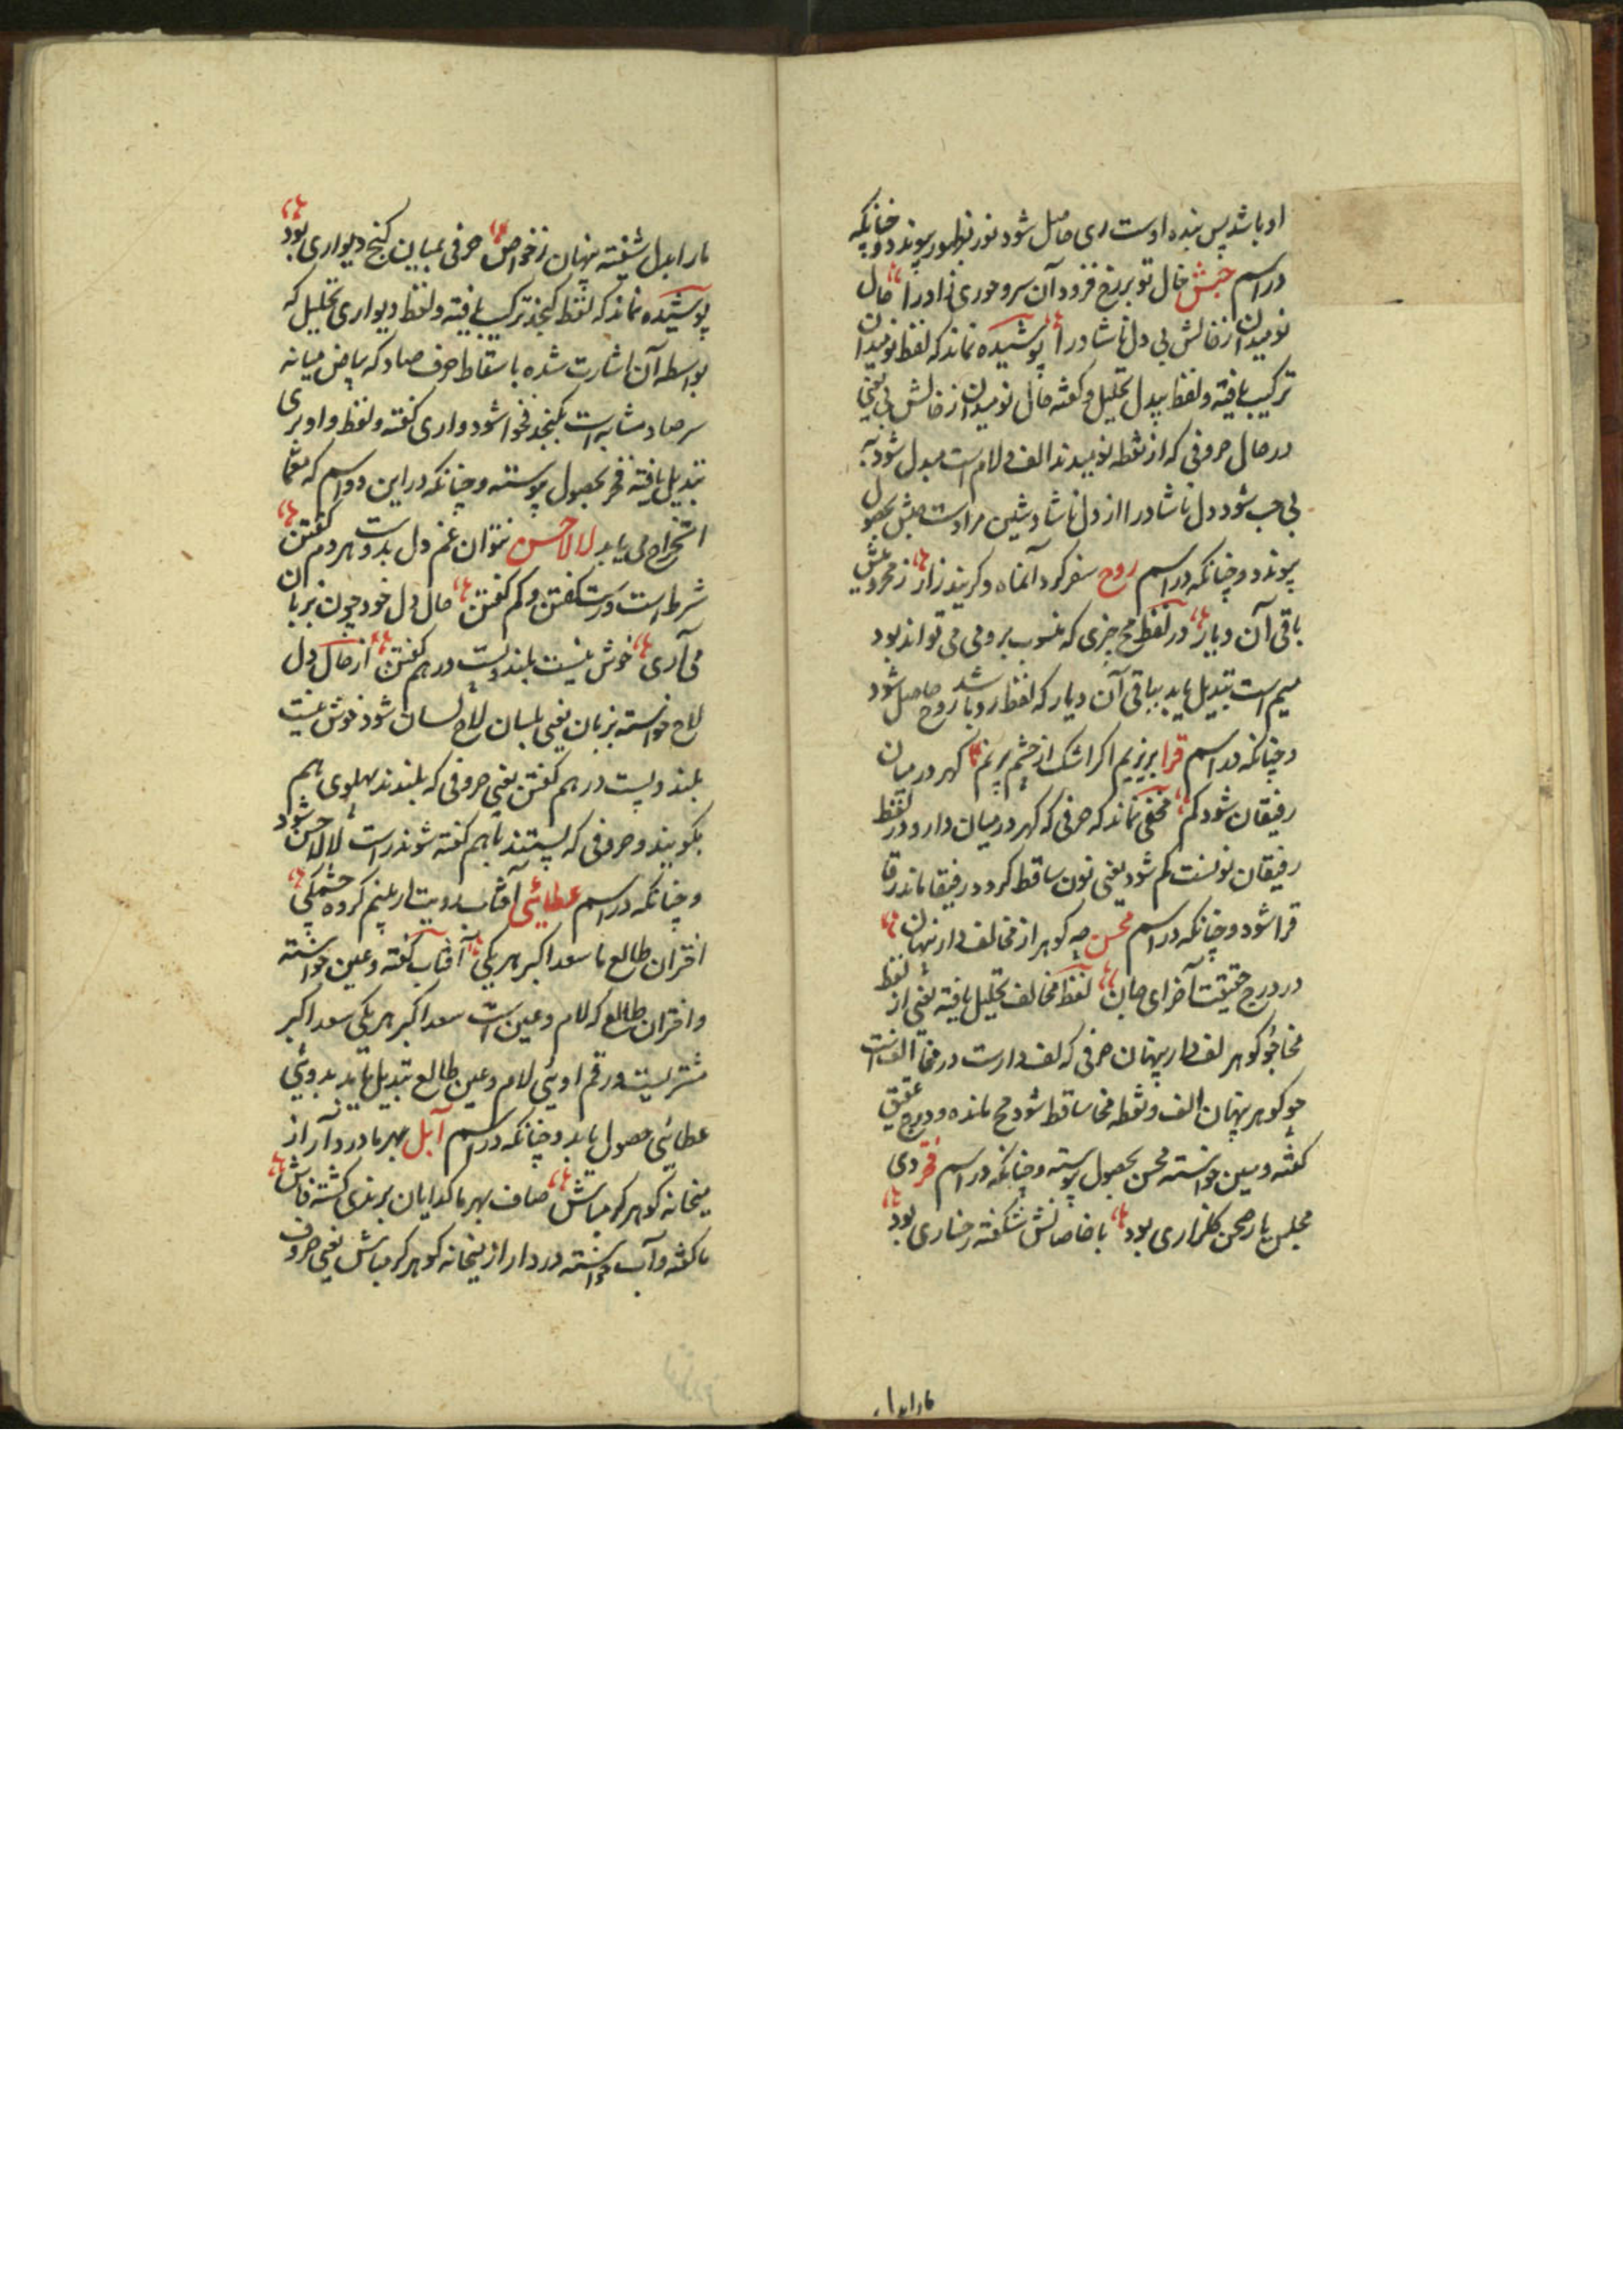 او باشد پس بنده اوست ری حاصل شود نور بظهور پیوندد و چنانکه
در اسم حبش خال تو بر رخ فزود آن سرو حوری نژاد را حال
نومیدان از خالش بی دل ناشاد را پوشیده نماند که لفظ نومیدان
ترکیب یافته و لفظ بیدل تحلیل و گفته حال نومیدان از خالش بی یعنی
در حال حروفی که از نقطه نومیدند الف و لام است مبدل شود به
بی حب شود دل ناشاد را از دل ناشاد شین مرادست حبش بحصول
پیوندد و چنانکه در اسم روح سفر کرد آنماه و گریند زار ز محرومیش
باقی آن دیار در لفظ مح چیزی که منسوب برومی می تواند بود
میم است تبدیل یابد بباقی آن دیار که لفظ رو باشد روح حاصل شود
و چنانکه در اسم قرا بریزیم اگر اشک از چشم پرنم گهر در میان
رفیقان شود کم مخفی نماند که حرفی که گهر در میان دارد در لفظ
رفیقان نونست کم شود یعنی نون ساقط گردد رفیقا ماند رقا
قرا شود و چنانکه در اسم محسن چه گوهر از مخالف دار پنهان
در درج حقیقت آخر ای جان لفظ مخالف تحلیل یافته یعنی از لفظ
مخا جو گوهر لف دار پنهان حرفی که لف دارست در مخا الفست
چو گوهر پنهان الف و نقطه مخا ساقط شود مح مانده و درج عقیق
گفته و سین خواسته محسن بحصول پیوسته و چنانکه در اسم فخر دی
مجلس یار صحن گلزاری بود با خاصانش شکفته رخساری بود
مارا بدل
مارا بدل شیفته پنهان ز خواص حرفی بمیان گنج دیواری بود
پوشیده نماند که لفظ گنجد ترکیب یافته و لفظ دیواری تحلیل که
بواسطه آن اشارت شده باسقاط حرف صاد که بیاض میانه
سر صاد مشابه است بگنجد فخوا شود واری گفته و لفظ وا و بری
تبدیل یافته فخر بحصول پیوسته و چنانکه در این دو اسم که معما
استخراج می یابد لالا حسن نتوان غم دل بدوست هر دم گفتن
شرط است درست گفتن و کم گفتن حال دل خود چون بزبان
می آری خوش نیست بلند و پست در هم گفتن از حال دل
لاح خواسته بزبان یعنی بلسان لاح لسان شود خوش نیست
بلند و پست در هم گفتن یعنی حروفی که بلندند پهلوی هم
بگویند و حروفی که پستند باهم گفته شوند راست لالا حسن شود
و چنانکه در اسم عطائی آفتاب رویت ار بینم گروه چشمکی
اقتران طالع ما سعد اکبر هر یکی آفتاب گفته و عین خواسته
و اقتران طالع که لام و عین است سعد اکبر هر یکی سعد اکبر
مشتریست و رقم او یی لام و عین طالع تبدیل یابد بدو یی
عطائی حصول یابد و چنانکه در اسم آبل بهر ما درد آر از
میخانه گو هرگو مباش صاف بهر ما گدایان برندی گشته فاش
ما گفته و آب خواسته درد ار از میخانه گو هرگو مباش یعنی حروف